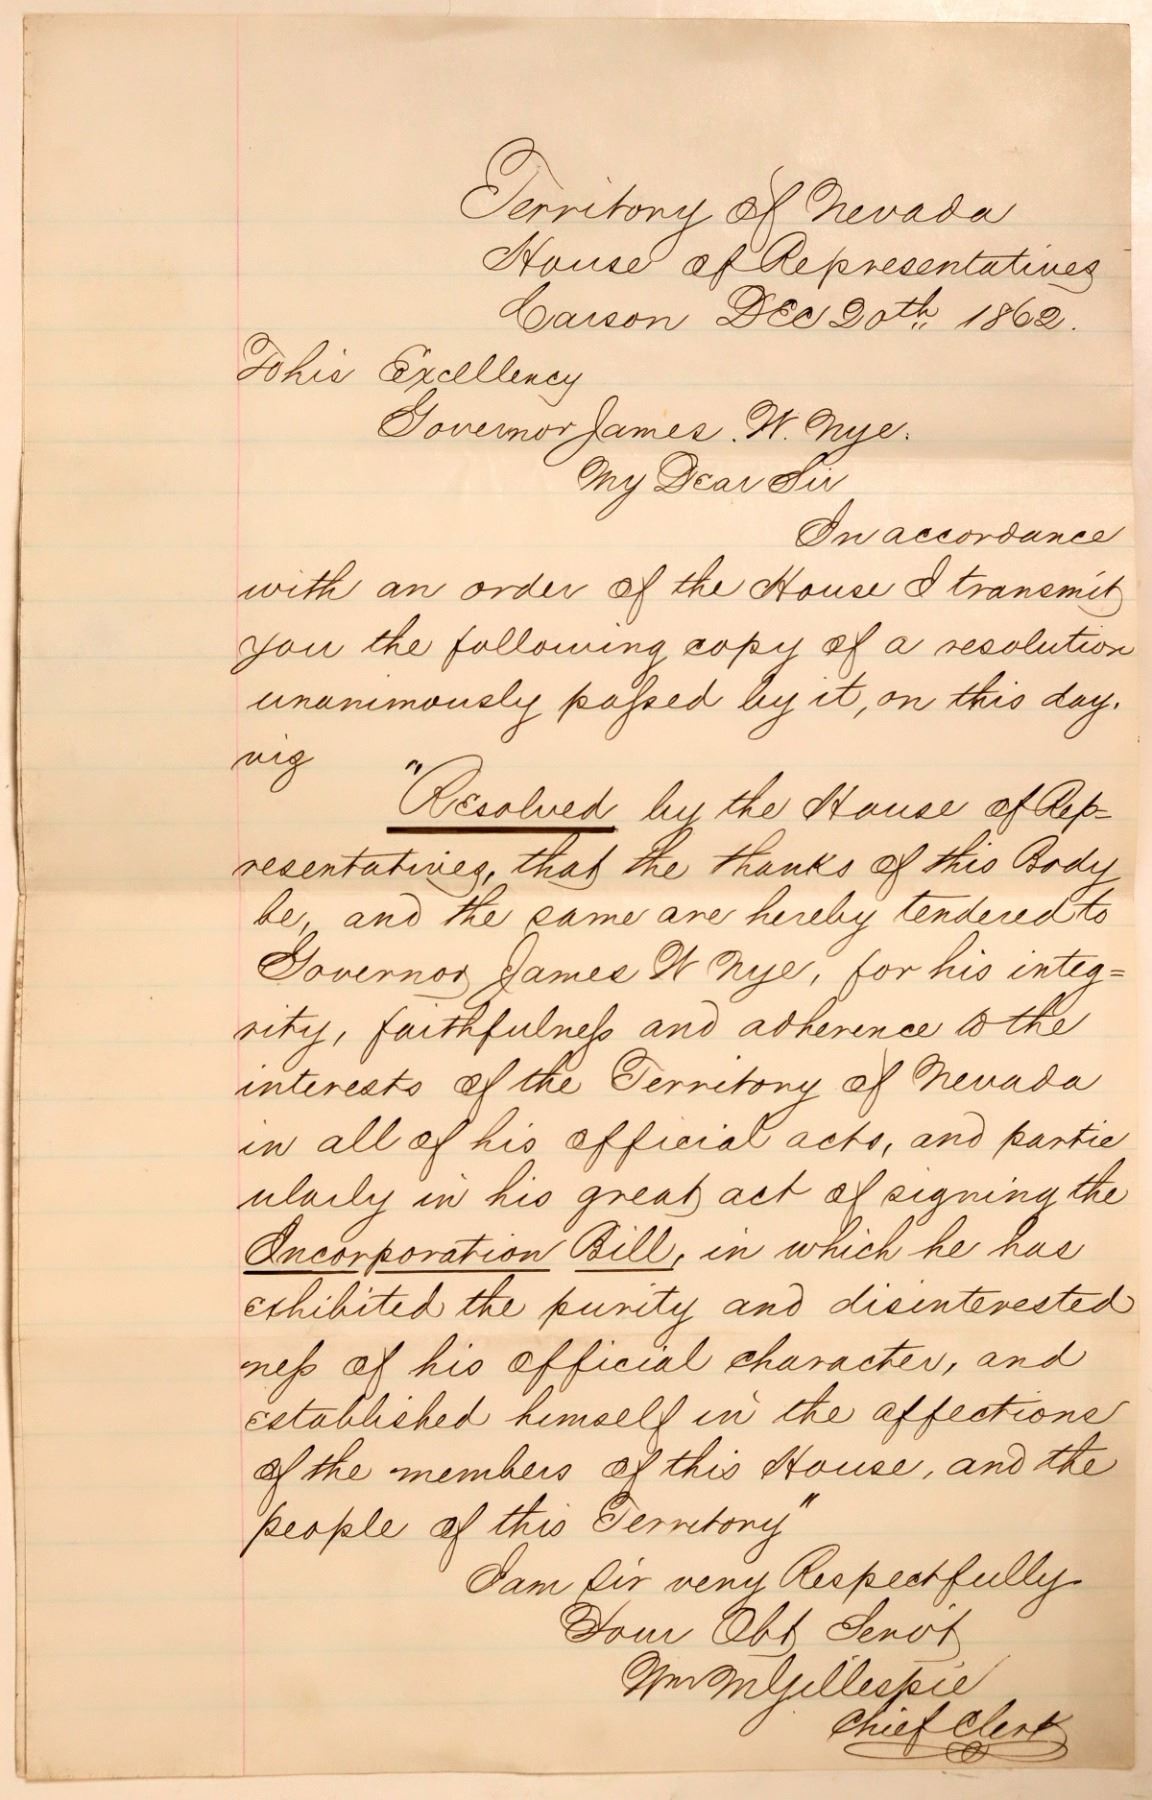 Territory of Nevada
House of Representatives
Carson Dec 20th 1862.
To his Excellency
Governor James. W. Nye.
My Dear Sir
In accordance
with an order of the House I transmit
you the following copy of a resolution
unanimously passed by it, on this day.
viz
"Resolved by the House of Rep=
resentatives, that the thanks of this Body
be, and the same are hereby tendered to
Governor James W Nye, for his integ=
rity, faithfulness and adherence to the
interests of the Territory of Nevada
in all of his official acts, and partic
ularly in his great act of signing the
Incorporation Bill, in which he has
exhibited the purity and disinterested
ness of his official character, and
established himself in the affections
of the members of this House, and the
people of this Territory"
I am Sir very Respectfully
Your Obt Serv't
Wm M Gillespie
Chief Clerk